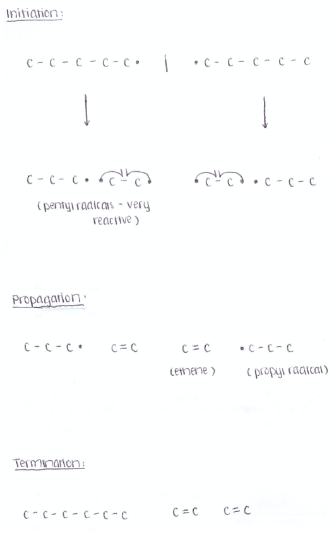 Initiation:
C - C - C - C - C • | • C - C - C - C - C
C - C - C • • C - C • • C - C • • C - C - C
(pentyl radicals - very
reactive)
Propagation:
C - C - C • C = C C = C • C - C - C
(ethene) (propyl radical)
Termination:
C - C - C - C - C - C C = C C = C